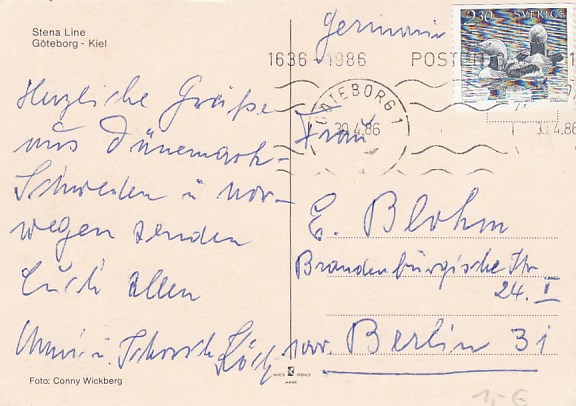 Stena Line
Göteborg - Kiel
Herzliche Grüße
aus Dänemark-
Schweden u Nor-
wegen senden
Euch allen
Germania
1636-1986 POSTEN
GÖTEBORG 1
30.4.86
30.4.86
2.30 SVERIGE
Frau
E. Blohm
Brandenburgische Str
24. I
Berlin 31
Foto: Conny Wickberg
1,- €